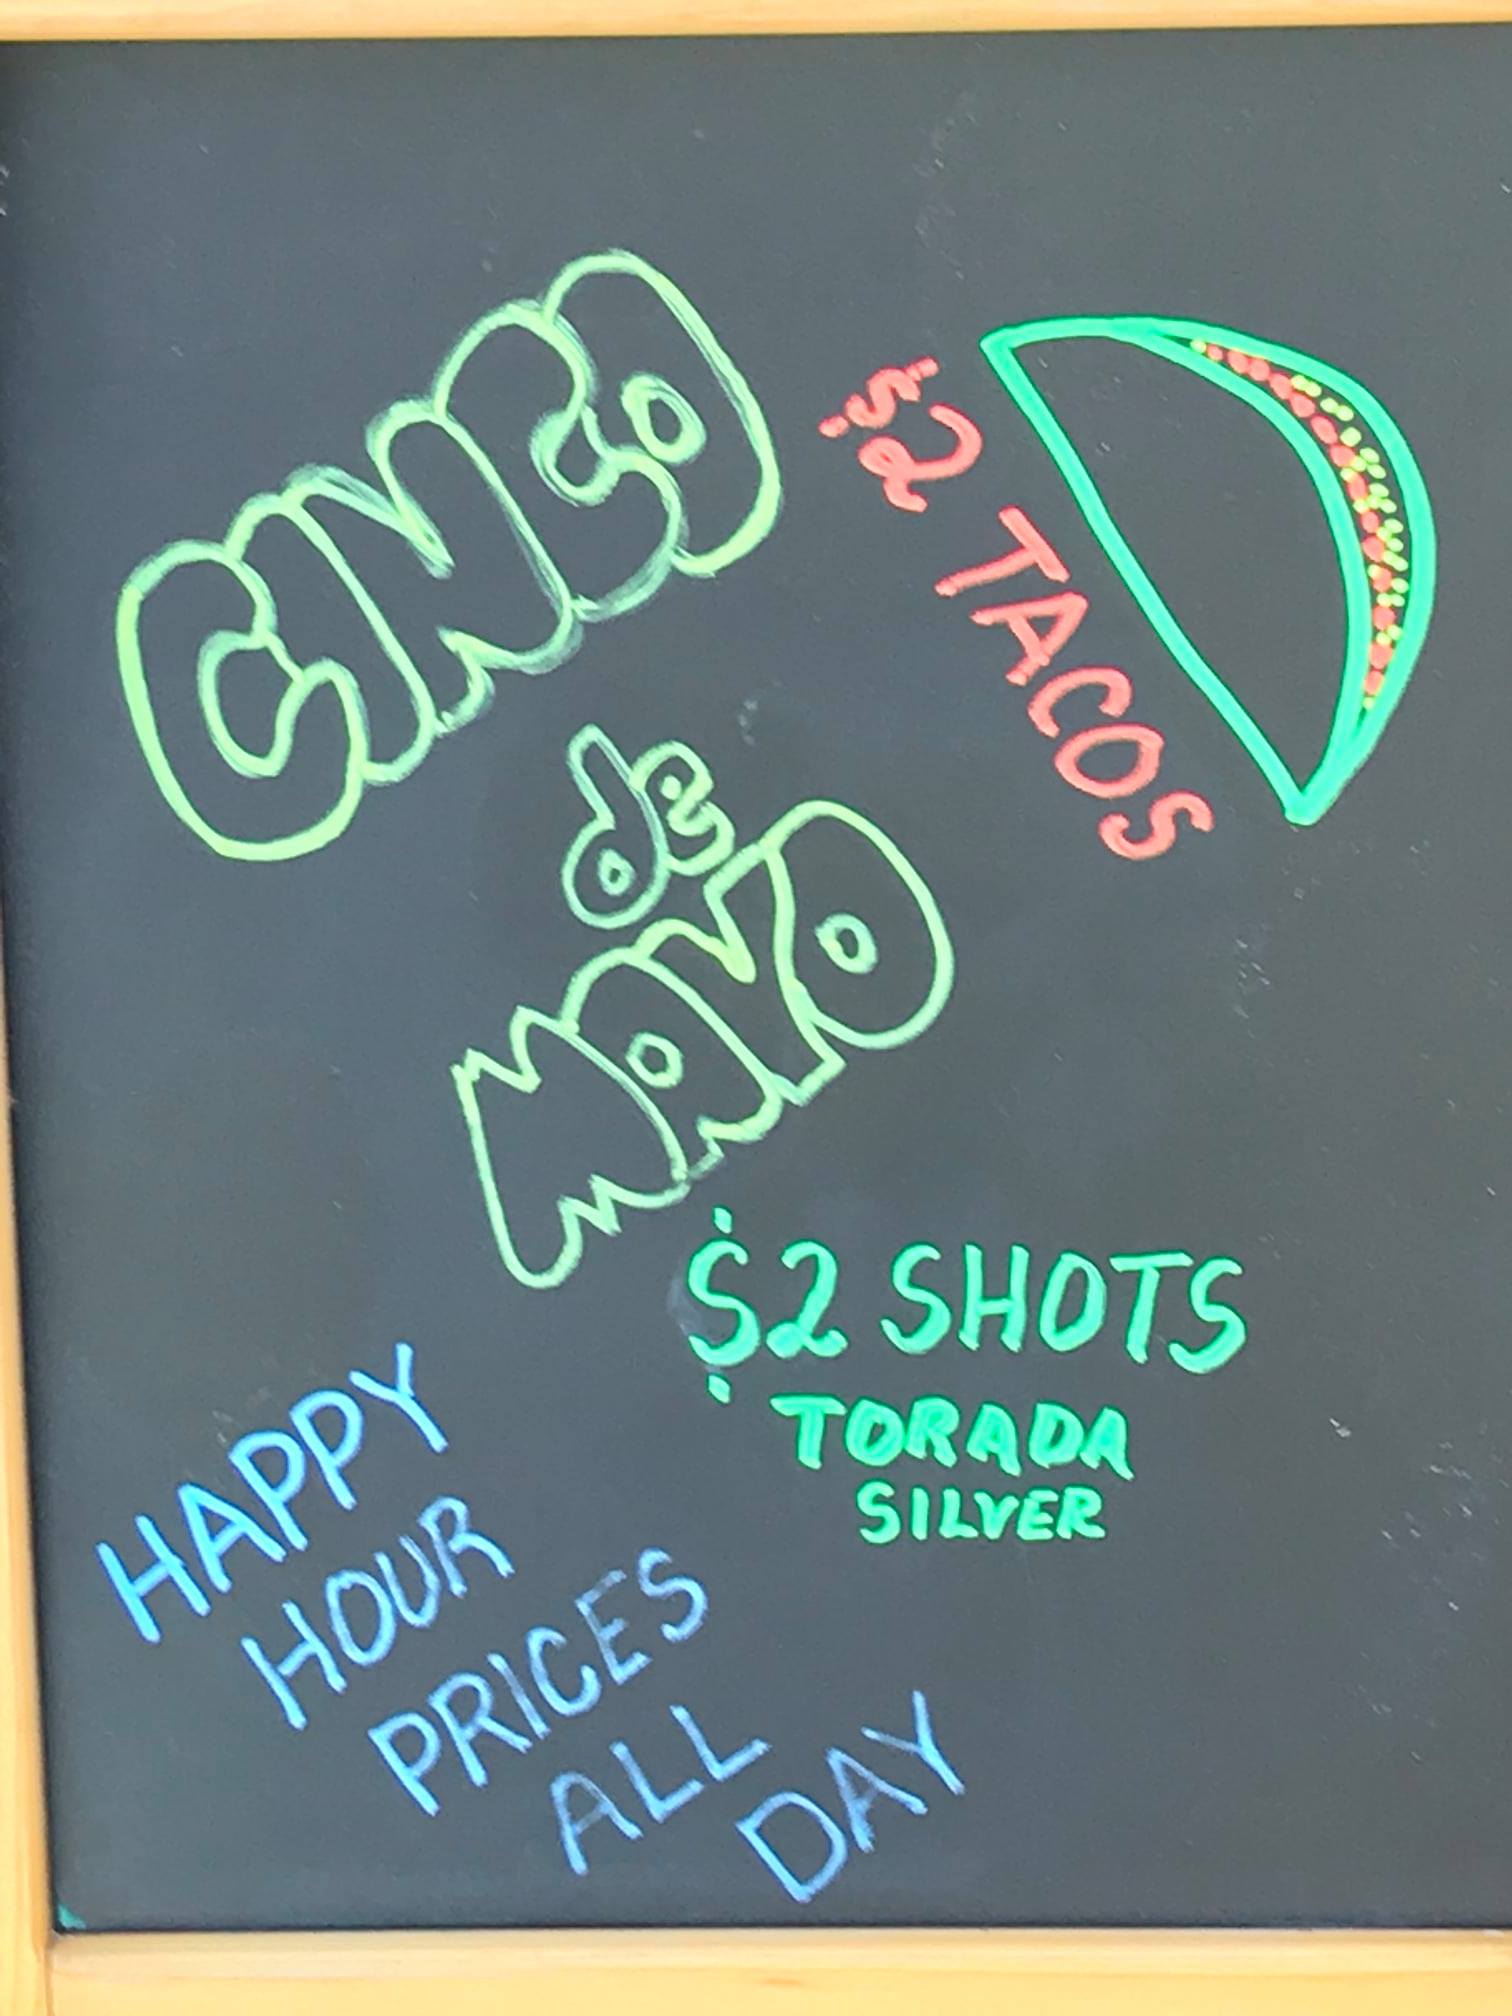 CINCO
de
MAYO
$2 TACOS
$2 SHOTS
TORADA
SILVER
HAPPY
HOUR
PRICES
ALL
DAY